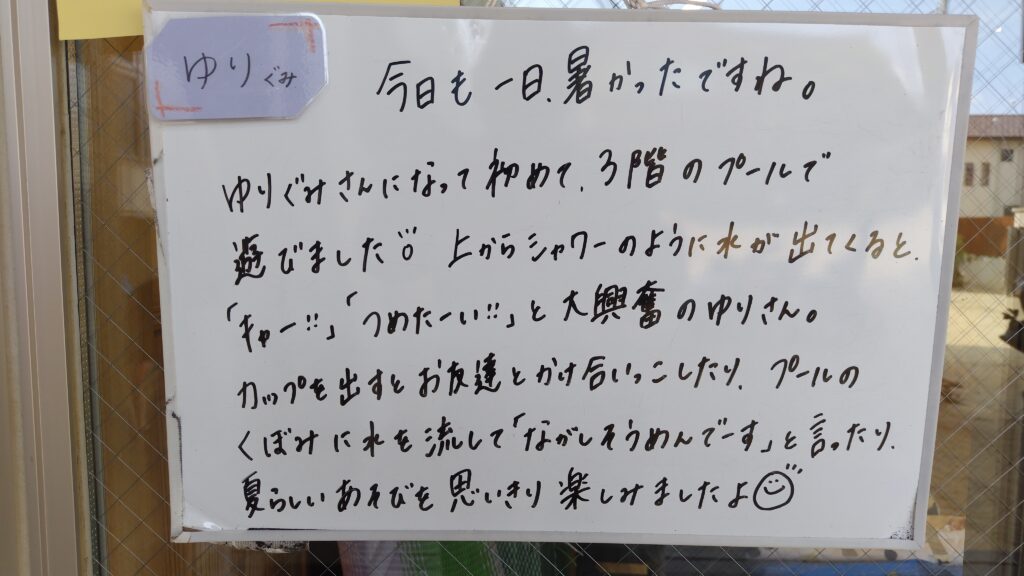 ゆりぐみ
今日も一日、暑かったですね。
ゆりぐみさんになって初めて、3階のプールで
遊びました!! 上からシャワーのように水が出てくると、
「キャー!!」「つめたーい!!」と大興奮のゆりさん。
カップを出すとお友達とかけ合いっこしたり、プールの
くぼみに水を流して「ながしそうめんでーす」と言ったり、
夏らしいあそびを思いきり楽しみましたよ